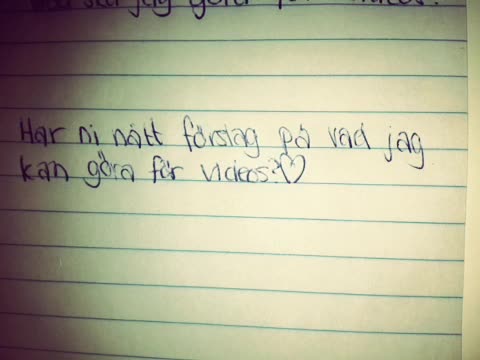 jag göra för
Har ni nått förslag på vad jag
kan göra för videos?♡